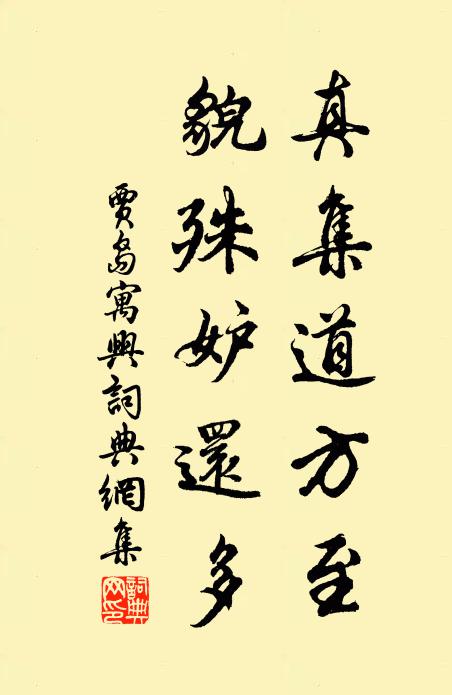 真集道方至
貌殊妒還多
賈島寓興詞典網集
詞典網印